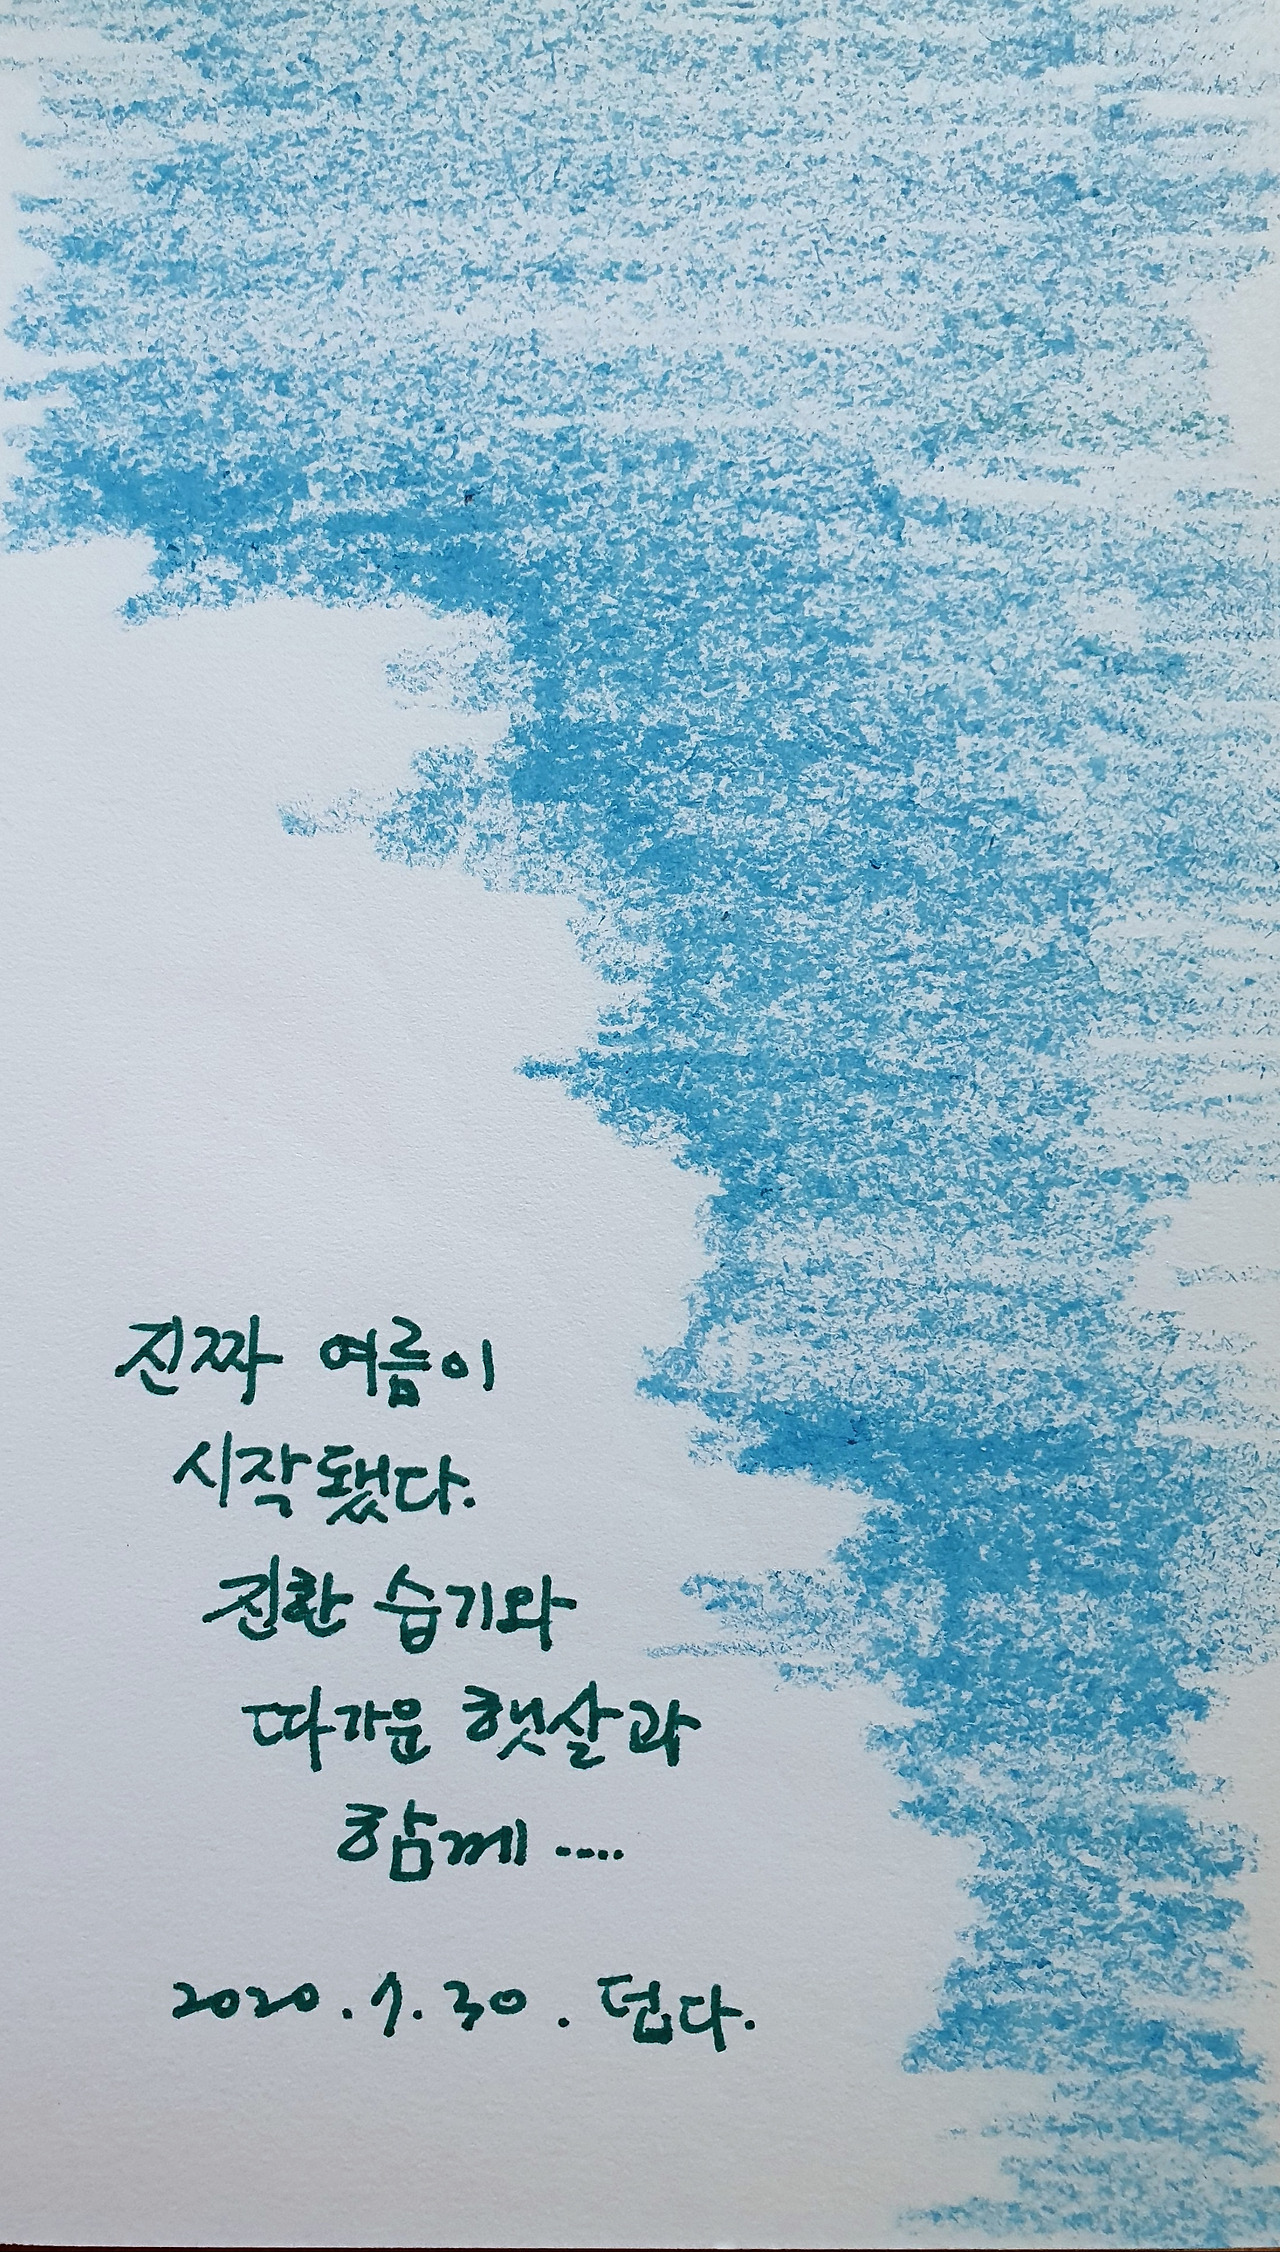 진짜 여름이
시작됐다.
진한 습기와
따가운 햇살과
함께 ....
2020. 7. 30. 덥다.